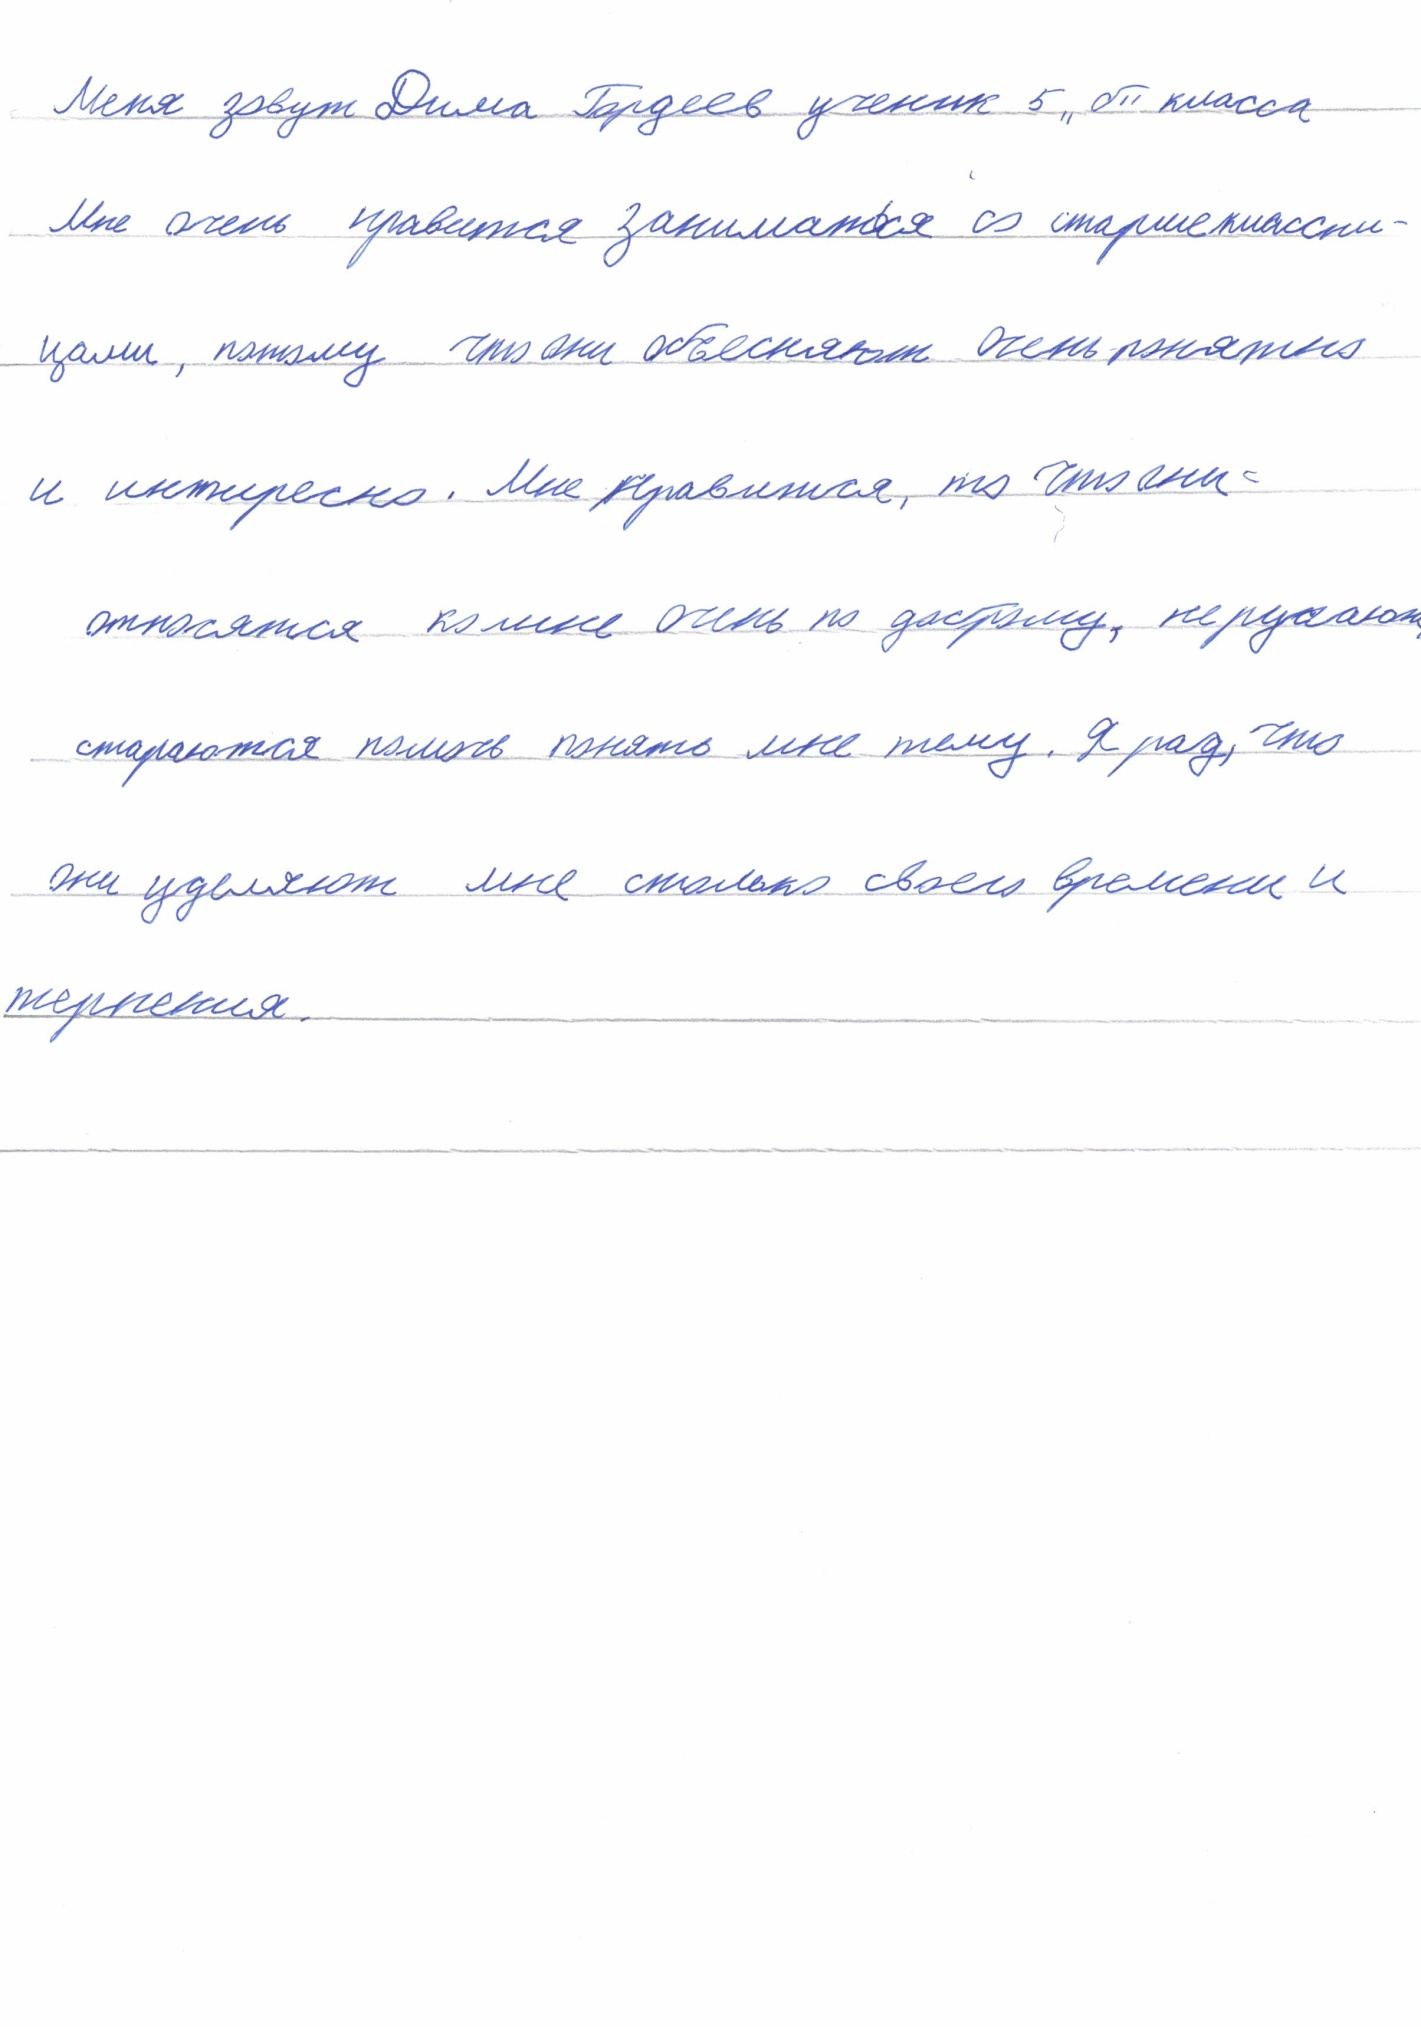 Меня зовут Дима Гордеев ученик 5 „б" класса
Мне очень нравится заниматься со старшеклассни-
цами, потому что они объесняют очень понятно
и интиресно. Мне нравится, то что они-
относятся ко мне очень по доброму, не ругают,
стараются помочь понять мне тему. Я рад, что
они уделяют мне столько своего времени и
терпения.